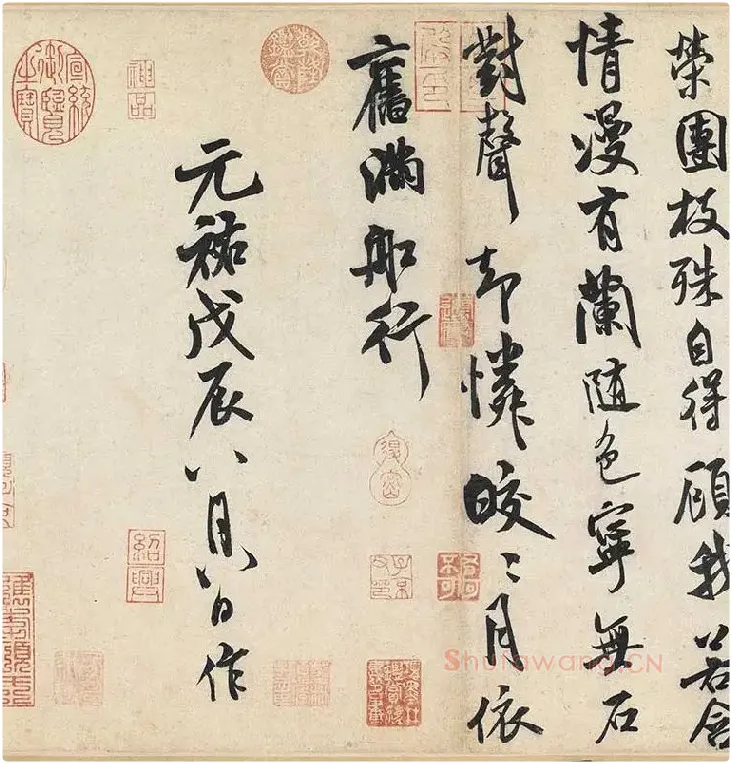 榮團枝殊自得顧我若含
情漫有蘭随色寧無石
對聲却憐皎〻月依
舊滿船行
元祐戊辰八月八日作
神品
紹興
Shufawang.CN